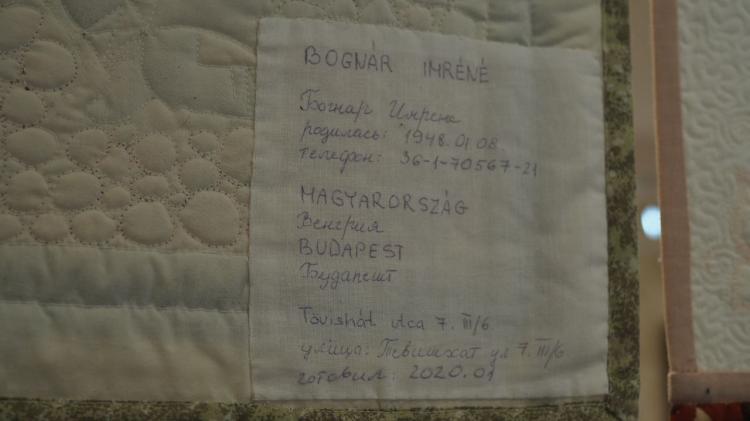 BOGNÁR IMRÉNÉ
Богнар Имрене
родилась: 1948.01.08
телефон: 36-1-70567-21
MAGYARORSZÁG
Венгрия
BUDAPEST
Будапешт
Tövishát utca 7. III/6
улица: Тевишхат ул 7. III/6
готовил: 2020.01